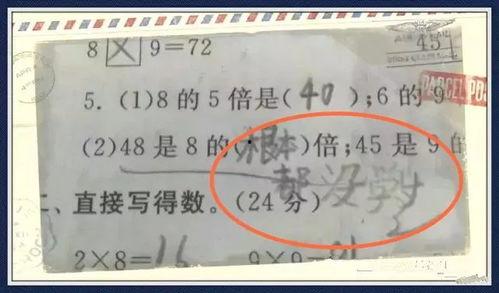 8 × 9=72
5. (1)8 的 5 倍是( 40 );6 的 9
(2)48 是 8 的(根本)倍;45 是 9 的
都没学
二、直接写得数。(24 分)
2×8=16 9×9=81
45
PARCEL PO